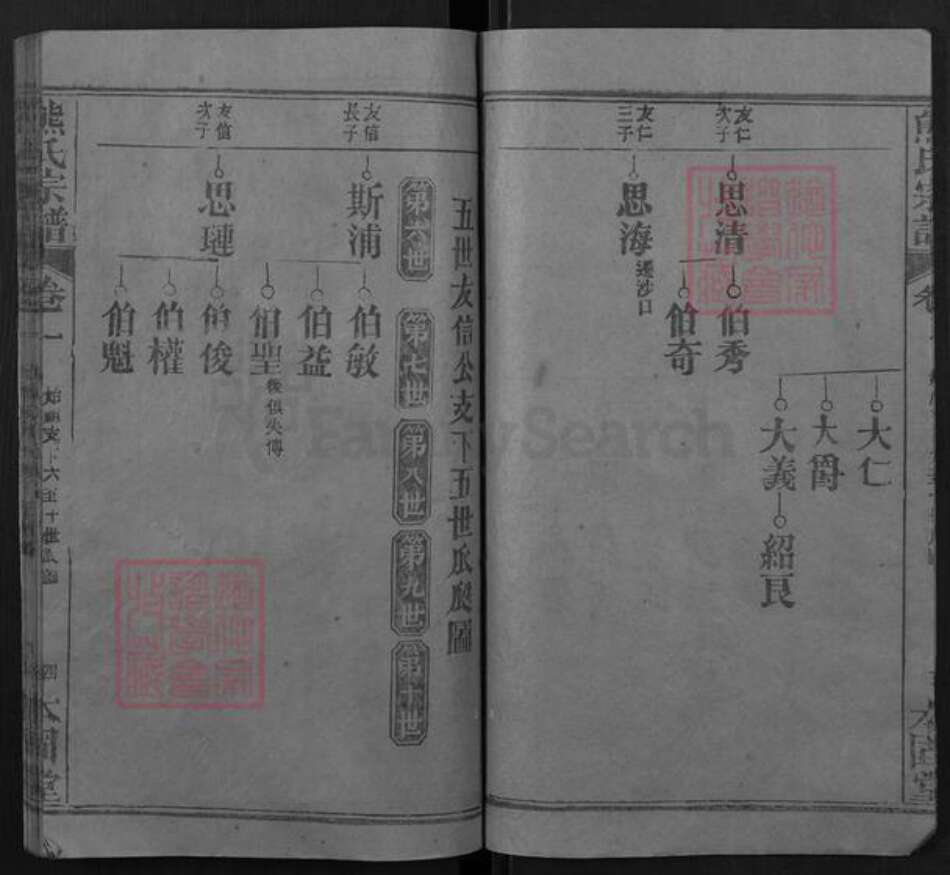 熊氏宗譜
友仁次子
思清
伯秀
伯奇
友仁三子
思海
遷沙口
大仁
大爵
大義
紹良
五世友信公支下五世瓜瓞圖
第六世
第七世
第八世
第九世
第十世
友信長子
斯浦
伯敏
伯益
伯聖
後俱失傳
友信次子
思璉
伯俊
伯權
伯魁
熊氏宗譜
卷一
始祖支下六至十世瓜瓞
四
本固堂
FamilySearch